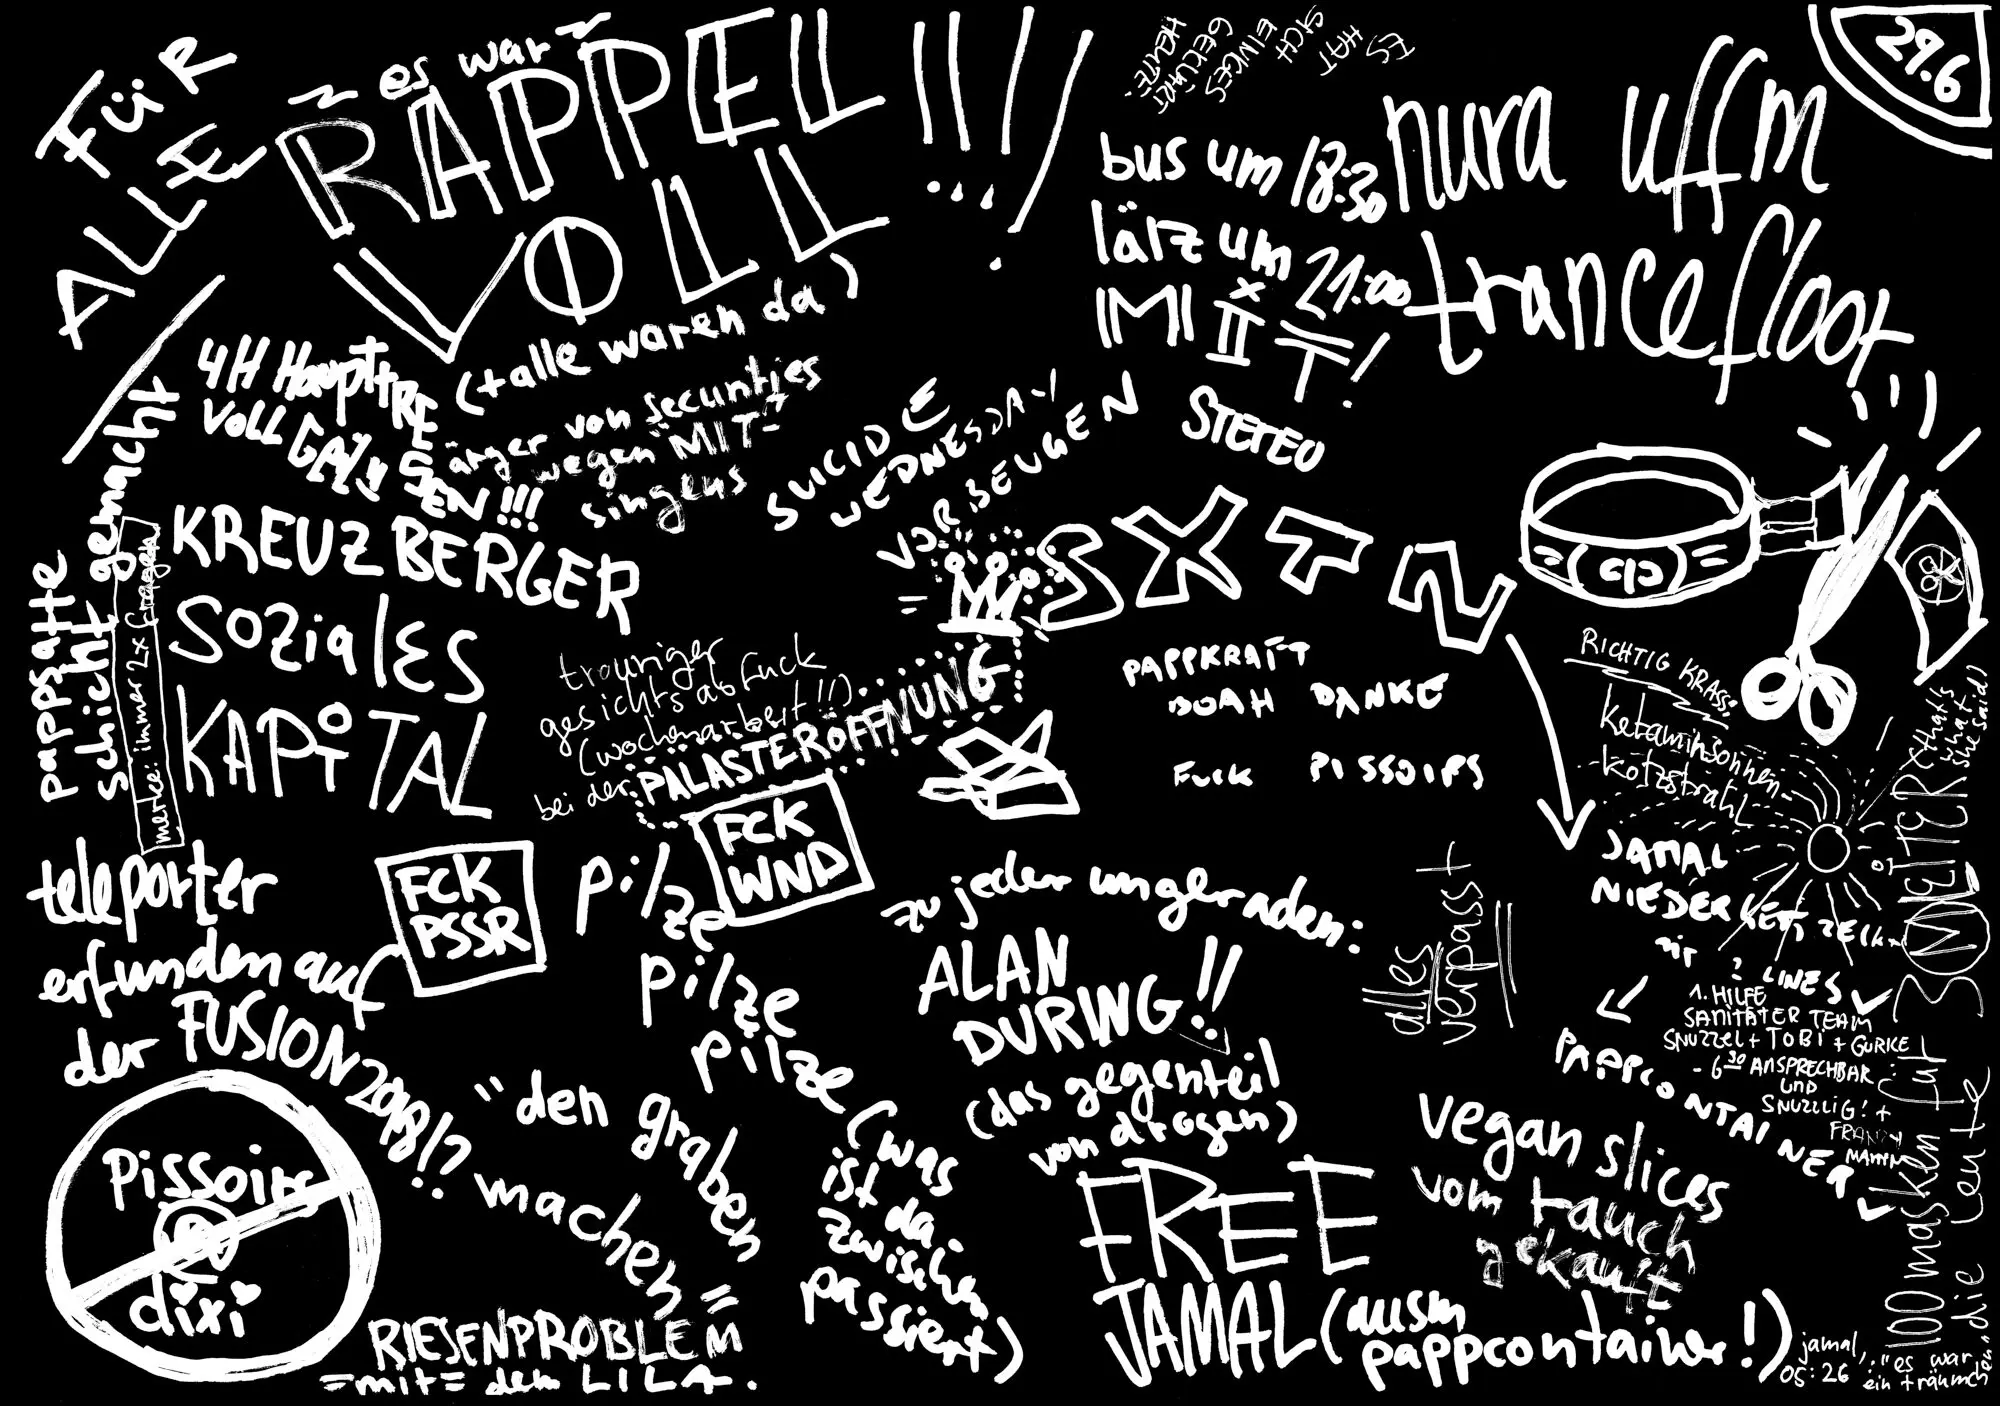 FÜR
ALLE
~ es war ~
RAPPEL
VOLL!!!...
(+ alle waren da)
ES
HAT
SICH
EINIGES
GEKLÄRT
HEUTE.
bus um 18:30
lärz um 21:00
nura uffm
trancefloor
29.6
4H HaupttRESEN!!!
VOLL GEIL!!
ärger von securities
wegen "MIT-
singens
SUICIDE
WEDNESDAY
VORBEUGEN
STEREO
SXTN
pappsatte
schicht gemacht
merke: immer 2x fragen
KREUZBERGER
SOZIALES
KAPITAL
trauriger
gesichtsabfuck
(wochenarbeit!!)
bei der PALASTERÖFFNUNG
PAPPKRAFT
BOAH DANKE
FUCK PISSOIRS
RICHTIG KRASS:
ketaminsonnen-
kotzstrahl
JAMAL
LINES
1. HILFE
SANITÄTER TEAM
SNUZZEL + TOBI + GURKE
- 6³⁰ ANSPRECHBAR
UND
SNUZZLIG! +
PAPPCONTAINER
100 masken für 300 MEITER
die leute
that's
what
she said
teleporter
erfunden auf
der FUSION 2018!?
FCK
PSSR
FCK
WND
pilze
pilze
pilze (was
ist da
zwischen
passiert)
zu jeder ungeraden:
ALAN
DURING!!
(das gegenteil
von drogen)
alles
verpasst
"den graben
machen"
pissoire
dixi
RIESENPROBLEM
=mit= dem LILA.
FREE
JAMAL (ausm
pappcontainer!)
vegan slices
vom tauch
gekauft
jamal,
05:26
"es war
ein träumchen"